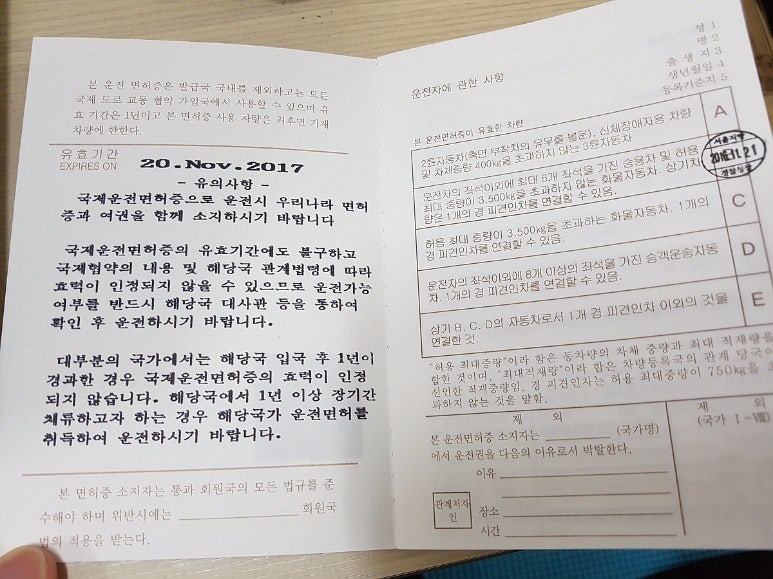 본 운전 면허증은 발급국 국내를 제외하고는 모든
국제 도로 교통 협약 가입국에서 사용할 수 있으며 유
효 기간은 1년이고 본 면허증 사용 차량은 최후면 기재
차량에 한한다.
유효기간
EXPIRES ON 20.Nov.2017
- 유의사항 -
국제운전면허증으로 운전시 우리나라 면허
증과 여권을 함께 소지하시기 바랍니다
국제운전면허증의 유효기간에도 불구하고
국제협약의 내용 및 해당국 관계법령에 따라
효력이 인정되지 않을 수 있으므로 운전가능
여부를 반드시 해당국 대사관 등을 통하여
확인 후 운전하시기 바랍니다.
대부분의 국가에서는 해당국 입국 후 1년이
경과한 경우 국제운전면허증의 효력이 인정
되지 않습니다. 해당국에서 1년 이상 장기간
체류하고자 하는 경우 해당국가 운전면허를
취득하여 운전하시기 바랍니다.
본 면허증 소지자는 통과 회원국의 모든 법규를 준
수해야 하며 위반시에는 회원국
법의 적용을 받는다.
운전자에 관한 사항
성 1
명 2
출생지 3
생년월일 4
등록기준지 5
본 운전면허증이 유효한 차량
2륜자동차(측면 부착차의 유무를 불문), 신체장애자용 차량
및 자체중량 400kg을 초과하지 않는 3륜자동차.
A
운전자의 좌석이외에 최대 8개 좌석을 가진 승용차 및 허용
최대 중량이 3,500kg을 초과하지 않는 화물자동차. 상기차
량은 1개의 경 피견인차를 연결할 수 있음.
2016.11.21
허용 최대 중량이 3,500kg을 초과하는 화물자동차. 1개의
경 피견인차를 연결할 수 있음.
C
운전자의 좌석이외에 8개 이상의 좌석을 가진 승객운송자동
차. 1개의 경 피견인차를 연결할 수 있음.
D
상기 B, C, D의 자동차로서 1개 경 피견인차 이외의 것을
연결한 것.
E
"허용 최대중량"이라 함은 동차량의 차체 중량과 최대 적재량을
합한 것이며, "최대적재량"이라 함은 차량등록국의 관계 당국이
신인한 적재중량임. 경 피견인차는 허용 최대중량이 750kg을 초
과하지 않는 것을 말함.
제 외
본 운전면허증 소지자는 (국가명)
에서 운전권을 다음의 이유로서 박탈한다.
이유
관계처자
인
장소
시간
제 외
(국가 I-VIII)